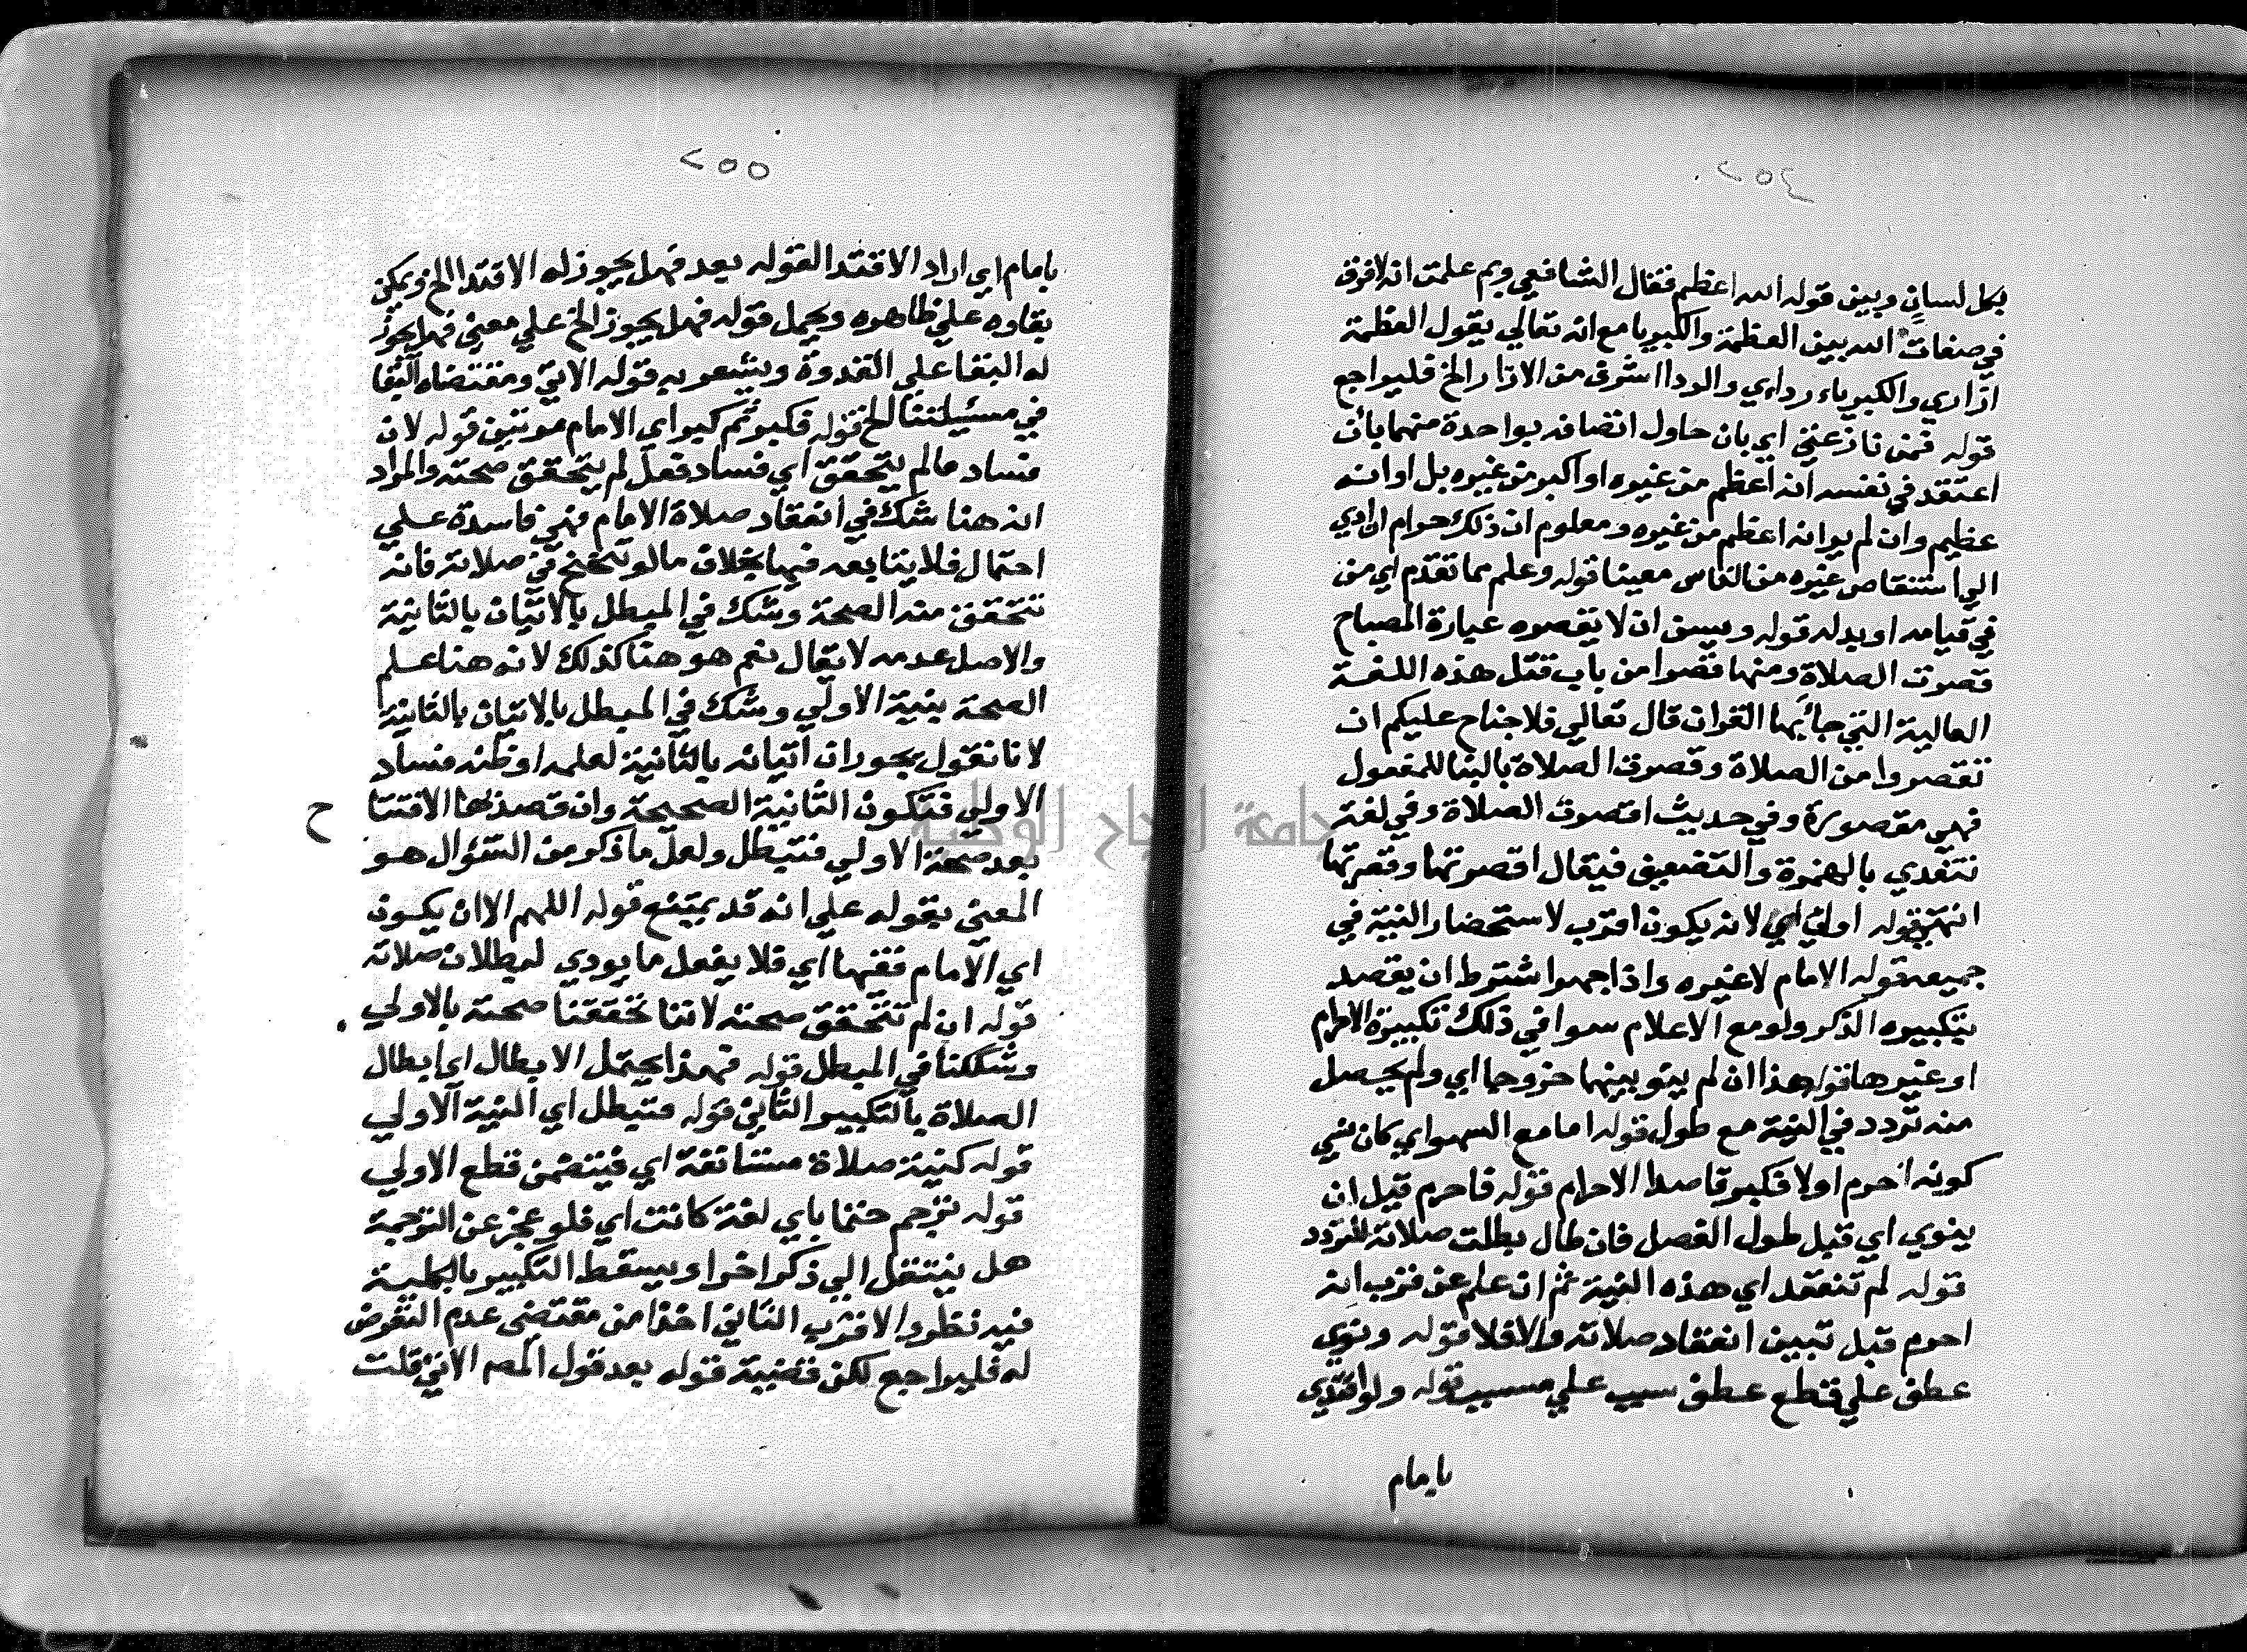 ٢٥٤
بكل لسان وبين قوله الله اعظم فقال الشافعي وبم علمت انه لا فرق
في صفات الله بين العظمة والكبريا مع انه تعالي يقول العظمة
ازاري والكبرياء رداءي والردا اشرف من الازار الخ فليراجع
قوله فمن نازعني اي بان حاول اتصافه بواحدة منهما بان
اعتقد في نفسه انه اعظم من غيره او اكبر من غيره بل او انه
عظيم وان لم ير انه اعظم من غيره ومعلوم ان ذلك حرام ان ادي
الي استنقاص غيره من الناس معينا قوله وعلم مما تقدم اي من
في قيامه او بدله قوله ويسن ان لا يقصره عبارة المصباح
قصرت الصلاة ومنها قصرا من باب قتل هذه اللغة
العالية التي جاء بها القران قال تعالي فلا جناح عليكم ان
تقصروا من الصلاة وقصرت الصلاة بالبنا للمفعول
فهي مقصورة وفي حديث اقصرت الصلاة وفي لغة
تتعدي بالهمزة والتضعيف فيقال اقصرتها وقصرتها
انتهي قوله اولي اي لانه يكون اقرب لاستحضار النية في
جميعه قوله الامام لا غيره واذا جهر اشترط ان يقصد
بتكبيره الذكر ولو مع الاعلام سوا في ذلك تكبيرة الاحرام
او غيرها قوله هذا ان لم ينو بينهما خروجا اي ولم يحصل
منه تردد في النية مع طول قوله اما مع السهو اي كان نسي
كونه احرم اولا فكبر قاصدا الاحرام قوله فاحرم قبل ان
ينوي اي قبل طول الفصل فان طال بطلت صلاته للتردد
قوله لم تنعقد اي هذه النية ثم ان علم عن قرب انه
احرم قبل تبين انعقاد صلاته والا فلا قوله ونوي
عطف علي قطع عطف سبب علي مسبب قوله ولو اقتدي
بامام
٢٥٥
بامام اي اراد الاقتدا لقوله بعد فهل يجوز له الاقتدا الخ ويمكن
بقاوه علي ظاهره ويحمل قوله فهل يجوز الخ علي معني فهل يجوز
له البقا علي القدوة ويشعر به قوله الاتي ومقتضاه البقا
في مسئلتنا الخ قوله فكبر ثم كبر اي الامام مرتين قوله لان
فساد ما لم يتحقق اي فساد فعل لم يتحقق صحته والمراد
انه هنا شك في انعقاد صلاة الامام فهي فاسدة علي
احتمال فلا يتابعه فيها بخلاف ما لو تنحنح في صلاته فانه
تتحقق منه الصحة وشك في المبطل بالاتيان بالثانية
والاصل عدمه لا يقال نعم هو هنا كذلك لانه هنا علم
الصحة بنية الاولي وشك في المبطل بالاتيان بالثانية
لانا نقول يجوز ان اتيانه بالثانية لعلمه او ظنه فساد
الاولي فتكون الثانية الصحيحة وان قصد بها الافتتا
ح
بعد صحة الاولي فتبطل ولعل ما ذكر من السؤال هو
المعني بقوله علي انه قد يمتنع قوله اللهم الا ان يكون
اي الامام فقيها اي فلا يفعل ما يودي لبطلان صلاته
قوله ان لم تتحقق صحته لاننا تحققنا صحته بالاولي
وشككنا في المبطل قوله فهذا يحتمل الابطال اي ابطال
الصلاة بالتكبير الثاني قوله فتبطل اي النية الاولي
قوله كنية صلاة مستانفة اي فيتضمن قطع الاولي
قوله ترجم حتما باي لغة كانت اي فلو عجز عن الترجمة
هل ينتقل الي ذكر اخر او يسقط التكبير بالكلية
فيه نظر والاقرب الثاني اخذا من مقتضي عدم التعرض
له فليراجع لكن قضية قوله بعد قول المصر الاتي قلت
جامعة النجاح الوطنية